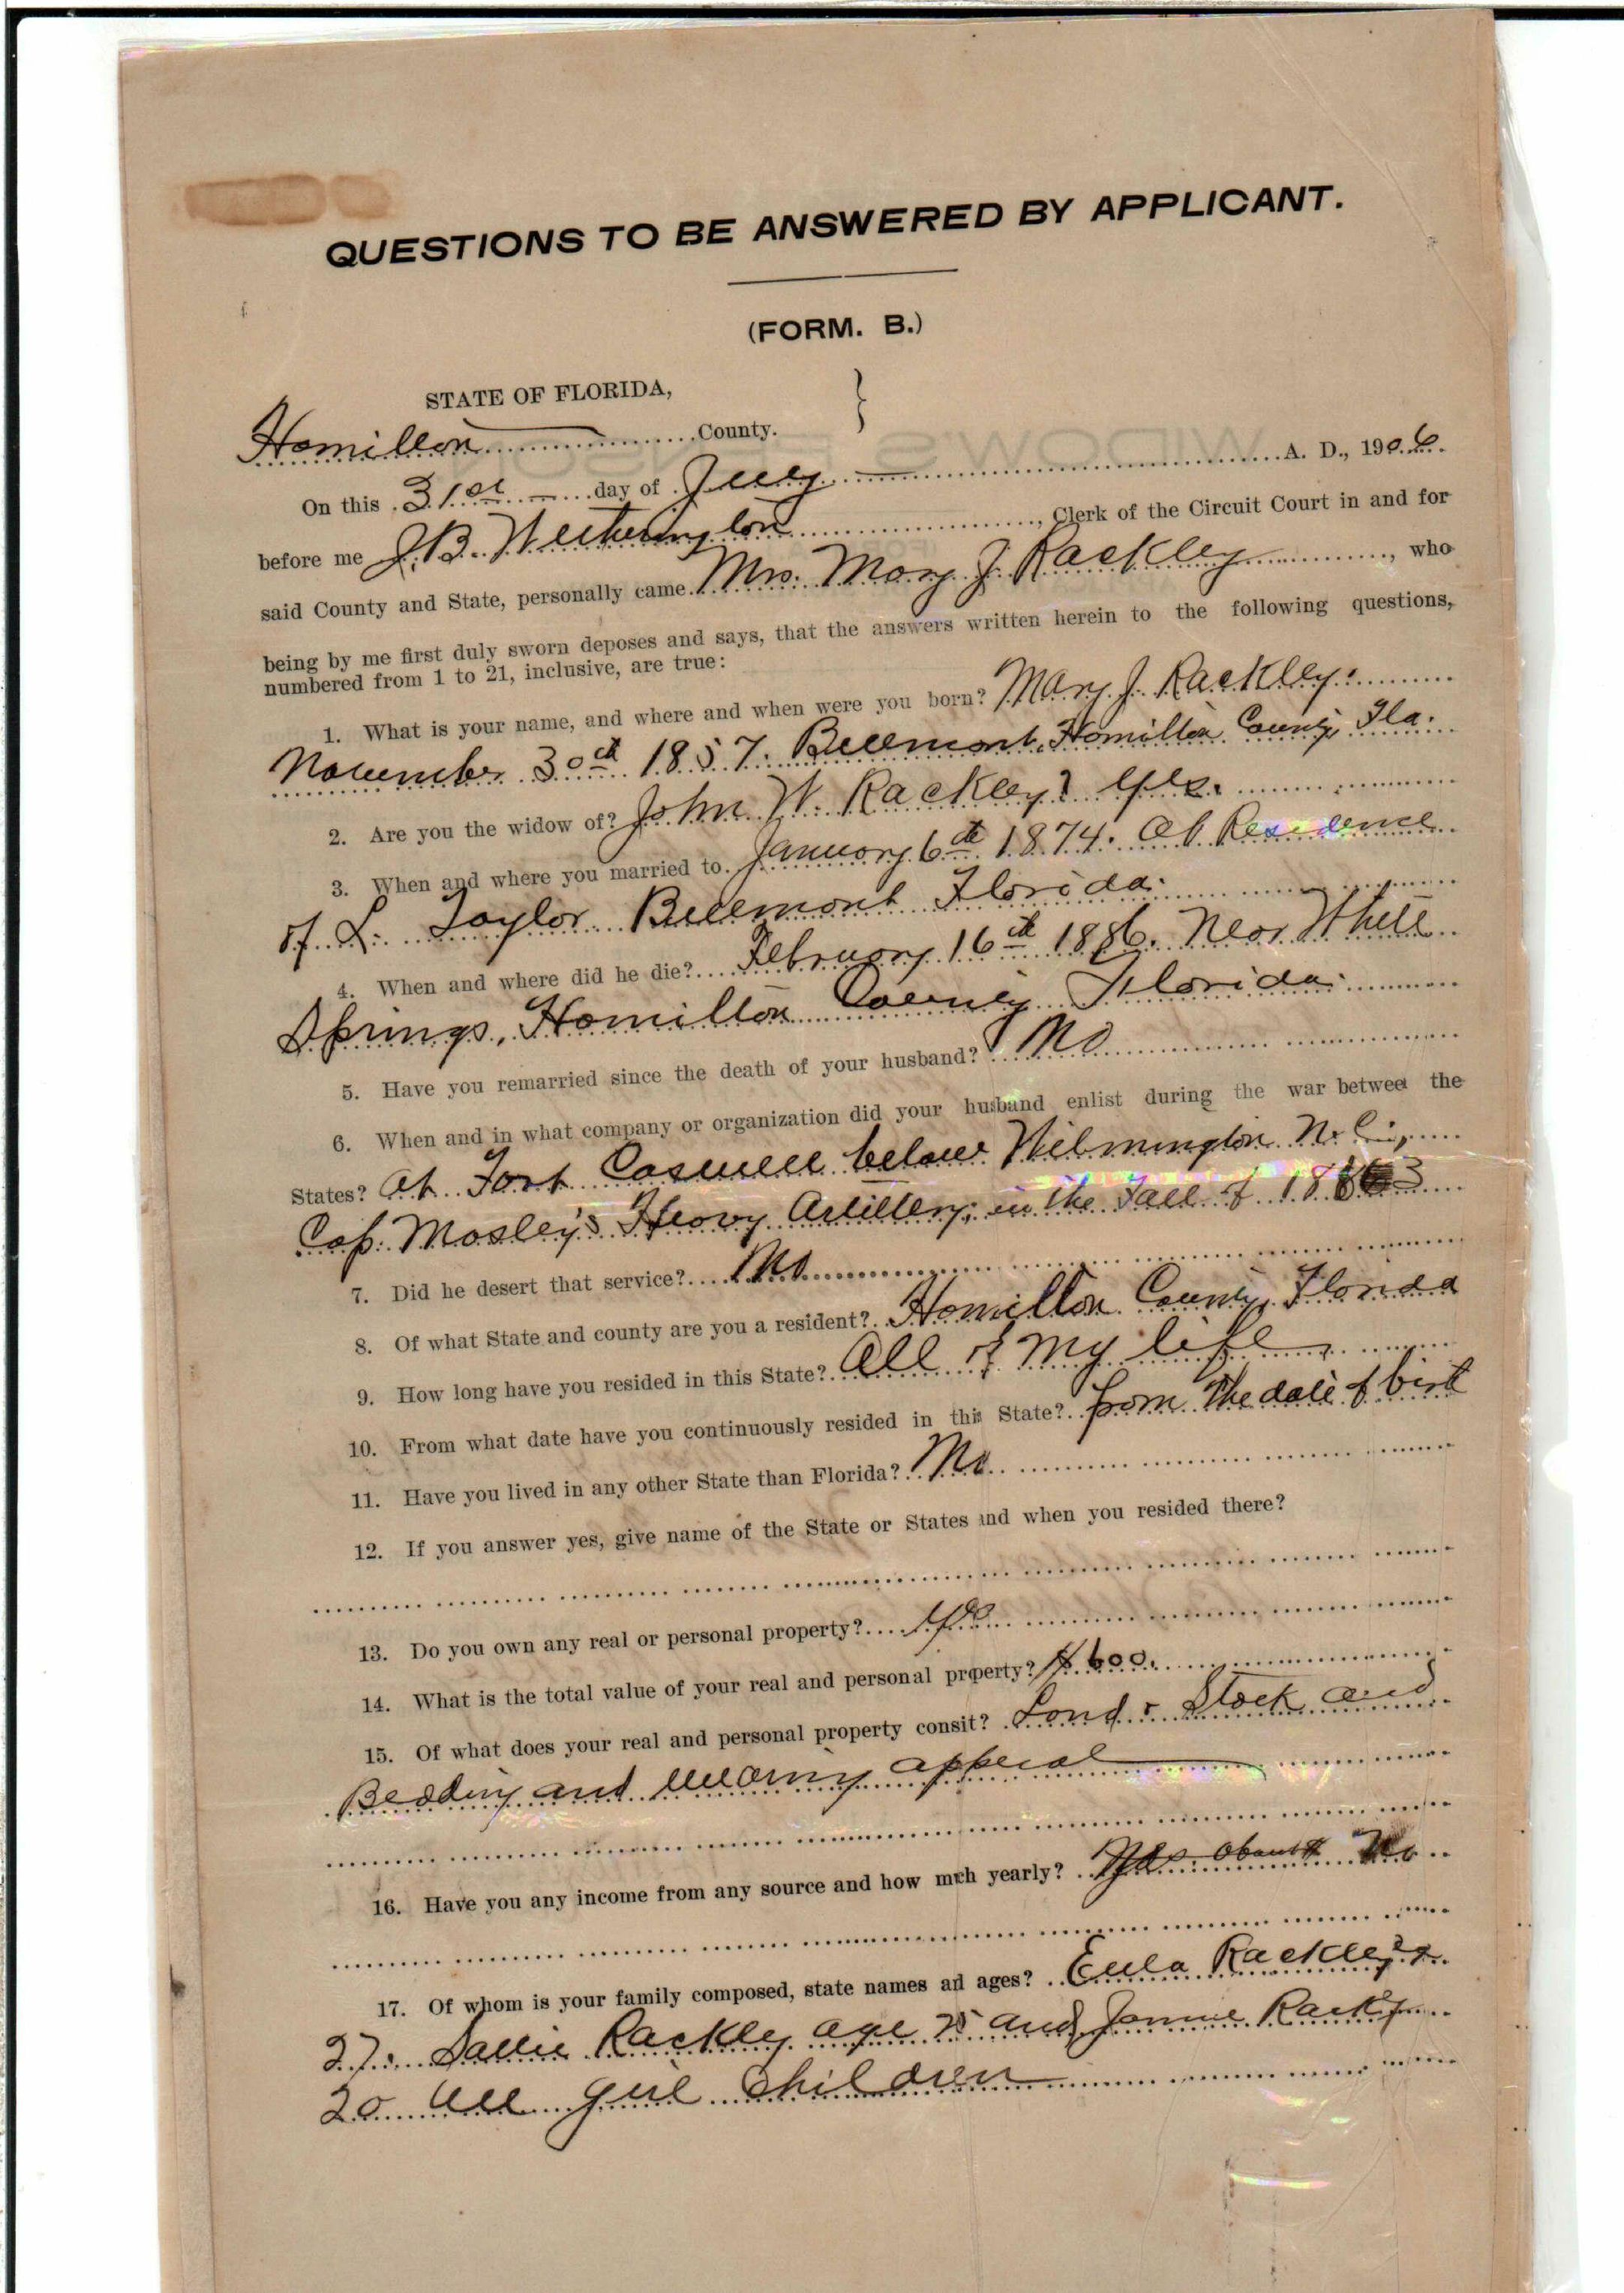 QUESTIONS TO BE ANSWERED BY APPLICANT.
(FORM. B.)
STATE OF FLORIDA,
Hamilton County.
On this 31st day of July A. D., 1906.
before me J. B. Wetherington, Clerk of the Circuit Court in and for
said County and State, personally came Mrs. Mary J. Rackley, who
being by me first duly sworn deposes and says, that the answers written herein to the following questions,
numbered from 1 to 21, inclusive, are true:
1. What is your name, and where and when were you born? Mary J. Rackley.
November 30th 1857. Bellmont, Hamilton County, Fla.
2. Are you the widow of? John W. Rackley? Yes.
3. When and where you married to. January 6th 1874. At Residence
of L. Taylor Bellmont Florida.
4. When and where did he die? February 16th 1886. Near White
Springs, Hamilton County Florida.
5. Have you remarried since the death of your husband? No
6. When and in what company or organization did your husband enlist during the war betwee the
States? At Fort Caswell below Wilmington N. C.,
Cap. Mosley's Heavy Artillery, in the Fall of 1863
7. Did he desert that service? No
8. Of what State and county are you a resident? Hamilton County, Florida
9. How long have you resided in this State? All of my life
10. From what date have you continuously resided in this State? from the date of birt
11. Have you lived in any other State than Florida? No
12. If you answer yes, give name of the State or States and when you resided there?
13. Do you own any real or personal property? Yes
14. What is the total value of your real and personal property? $600.
15. Of what does your real and personal property consit? Land & Stock and
Bedding and wearing apperal
16. Have you any income from any source and how mch yearly? Yes about No
17. Of whom is your family composed, state names ad ages? Eula Rackley
27. Sallie Rackley age 25 and Jannie Rackley
20 All girl Children
WIDOW'S